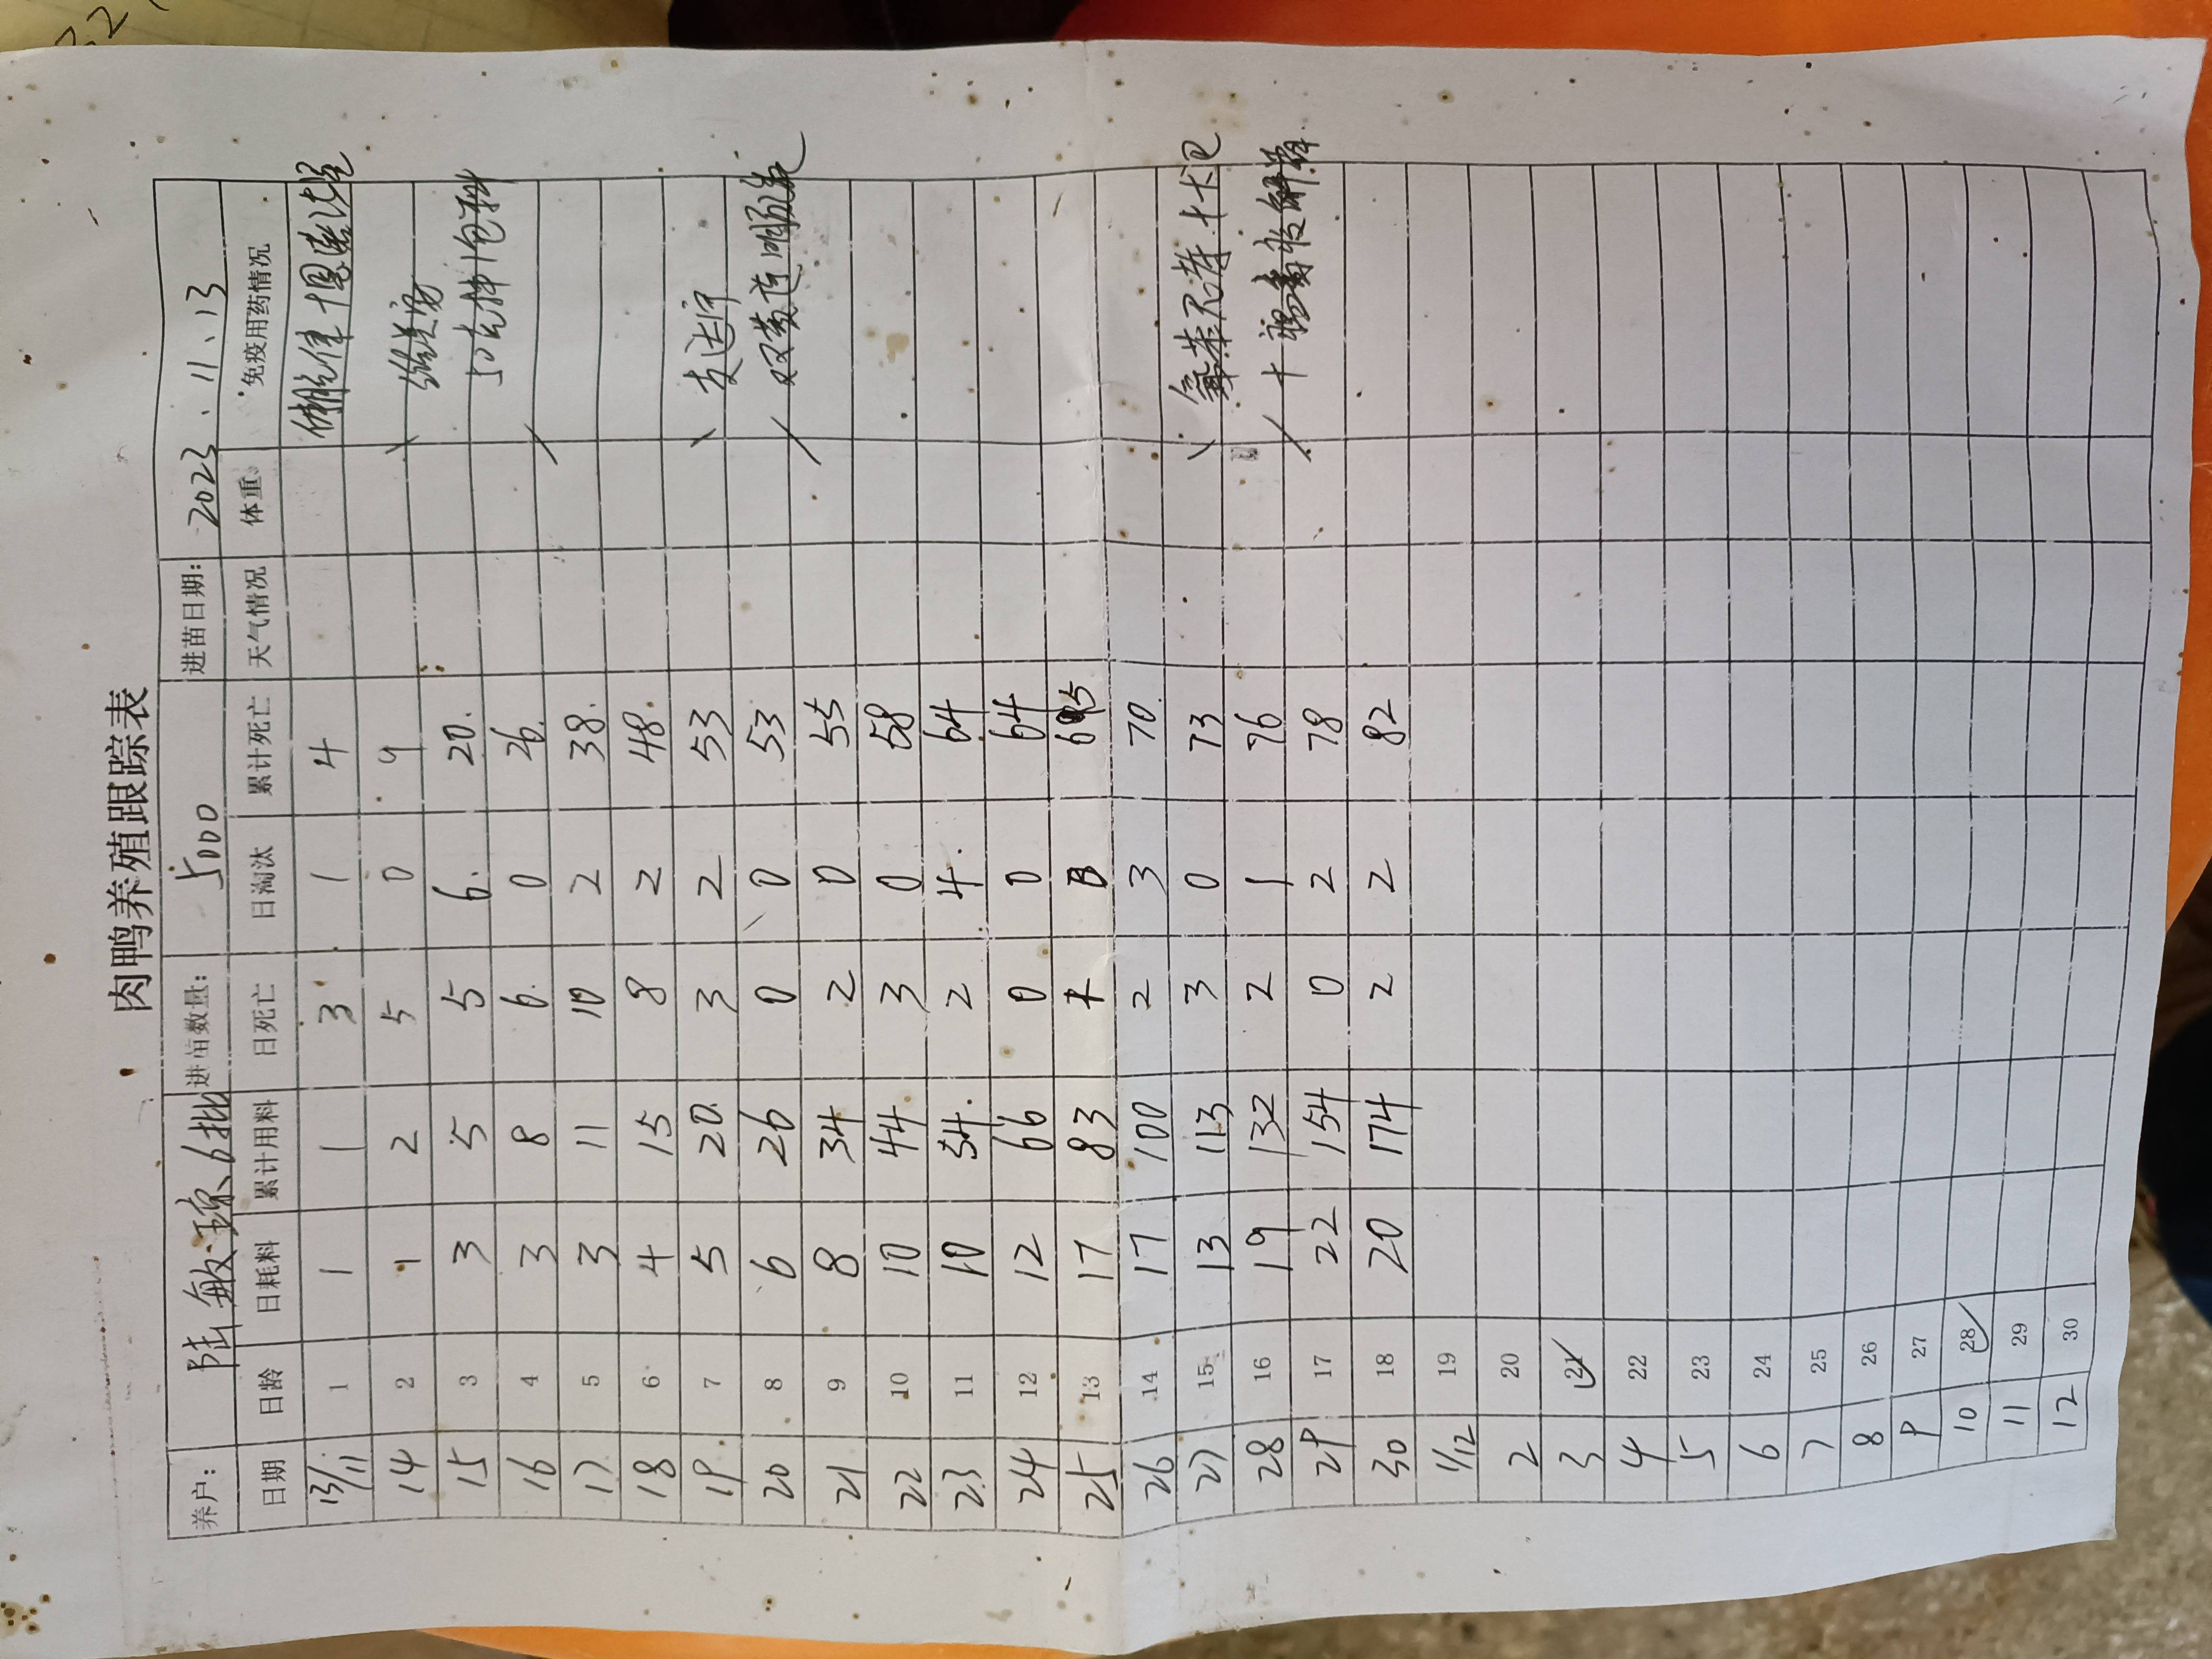 肉鸭养殖跟踪表
养户: 陆敏琼6批 进苗数量: 5000 进苗日期: 2023.11.13
日期 日龄 日耗料 累计用料 日死亡 日淘汰 累计死亡 天气情况 体重 免疫用药情况
13/11 1 1 1 3 1 4
14 2 1 2 5 0 9
15 3 3 5 5 6. 20. 50克拌1包料
16 4 3 8 6. 0 26.
17 5 3 11 10 2 38.
18 6 4 15 8 2 48.
19. 7 5 20. 3 2 53
20 8 6 26 0 0 53 双黄连
21 9 8 34 2 0 55
22 10 10 44 3 0 58
23 11 10 54. 2 4. 64
24 12 12 66 0 0 64
25 13 17 83 1 0 65
26 14 17 100 2 3 70.
27 15 13 113 3 0 73 氟苯尼考
28 16 19 132 2 1 76
29 17 22 154 0 2 78
30 18 20 174 2 2 82
1/12 19
2 20
3 21
4 22
5 23
6 24
7 25
8 26
9 27
10 28
11 29
12 30